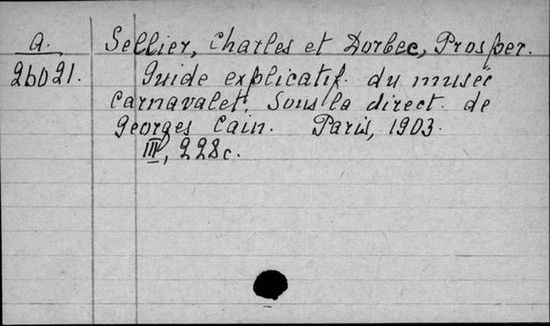 a. Sellier, Charles et Dorbec, Prosper.
26021. Guide explicatif du musée
Carnavalet. Sous la direct. de
Georges Cain. Paris, 1903.
III, 228c.